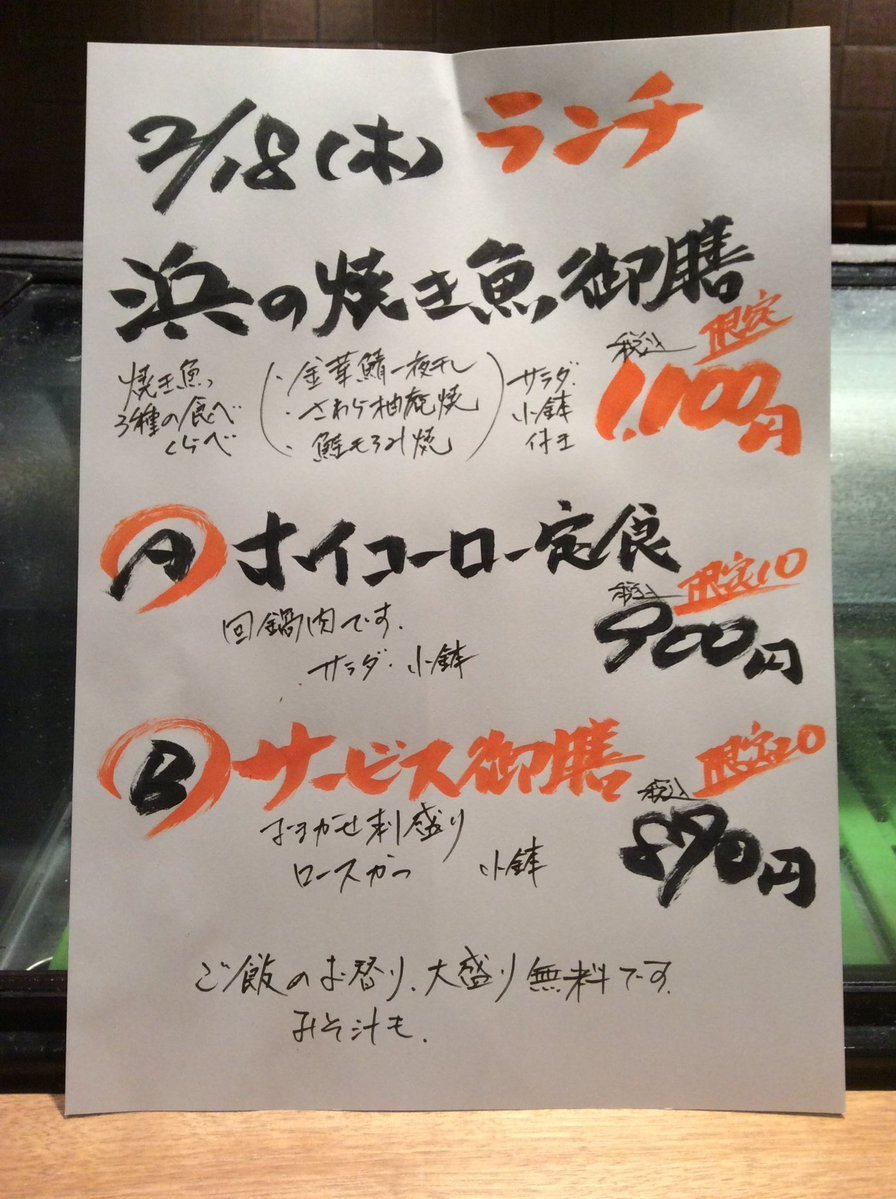 2/18(木) ランチ
浜の焼き魚御膳
限定
税込
1,100円
焼き魚
3種の食べ
くらべ
・金華鯖一夜干し
・さわら柚庵焼
・鮭もろみ焼
サラダ・
小鉢
付き
A ホイコーロー定食
限定10
税込
900円
回鍋肉です.
サラダ・小鉢
B サービス御膳
限定20
税込
870円
おまかせ刺盛り
ロースかつ 小鉢
ご飯のお替り、大盛り無料です.
みそ汁も.